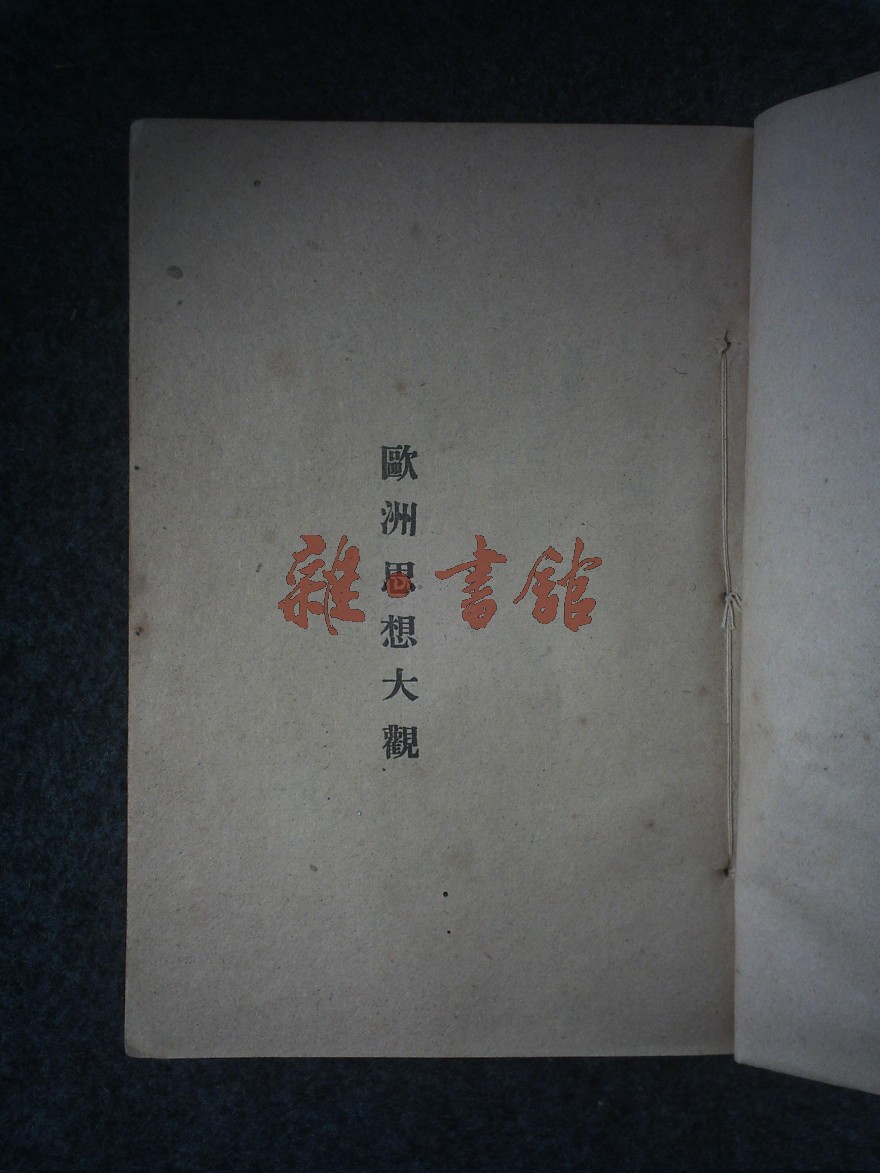 歐洲思想大觀
雜書館